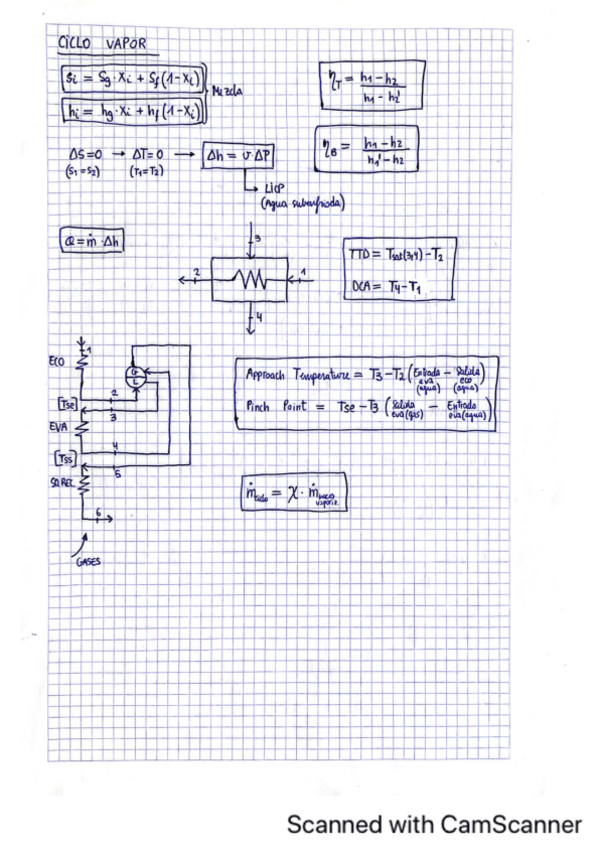 CICLO VAPOR
Si = Sg · Xi + Sf (1-Xi)
hi = hg · Xi + hf (1-Xi)
Mezcla
ηT = h1 - h2 / h1 - h2'
ΔS=0 → ΔT=0 → Δh = v · ΔP
(S1=S2) (T1=T2)
LIQ
(Agua subenfriada)
ηB = h1 - h2 / h1' - h2
Q = ṁ · Δh
3
2
1
4
TTD = Tsat(3,4) - T2
DCA = T4 - T1
1
ECO
G
L
2
[TSE]
3
EVA
4
[TSS]
5
SOREC
6
GASES
Approach Temperature = T3 - T2 (Entrada eva (agua) - Salida eco (agua))
Pinch Point = TSE - T3 (Salida eva (gas) - Entrada eva (agua))
ṁ = X · ṁ
Scanned with CamScanner